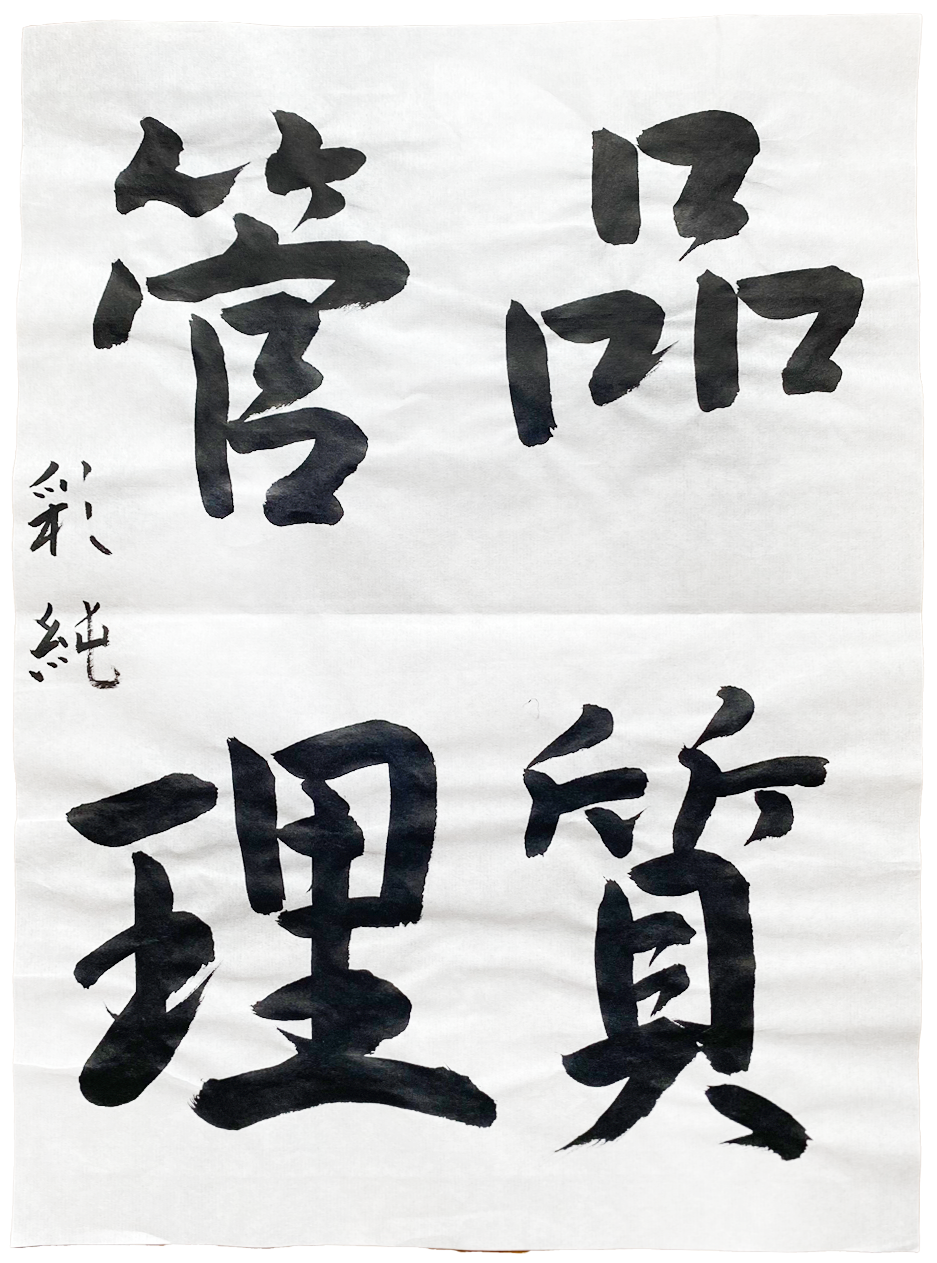 品質
管理
彩純